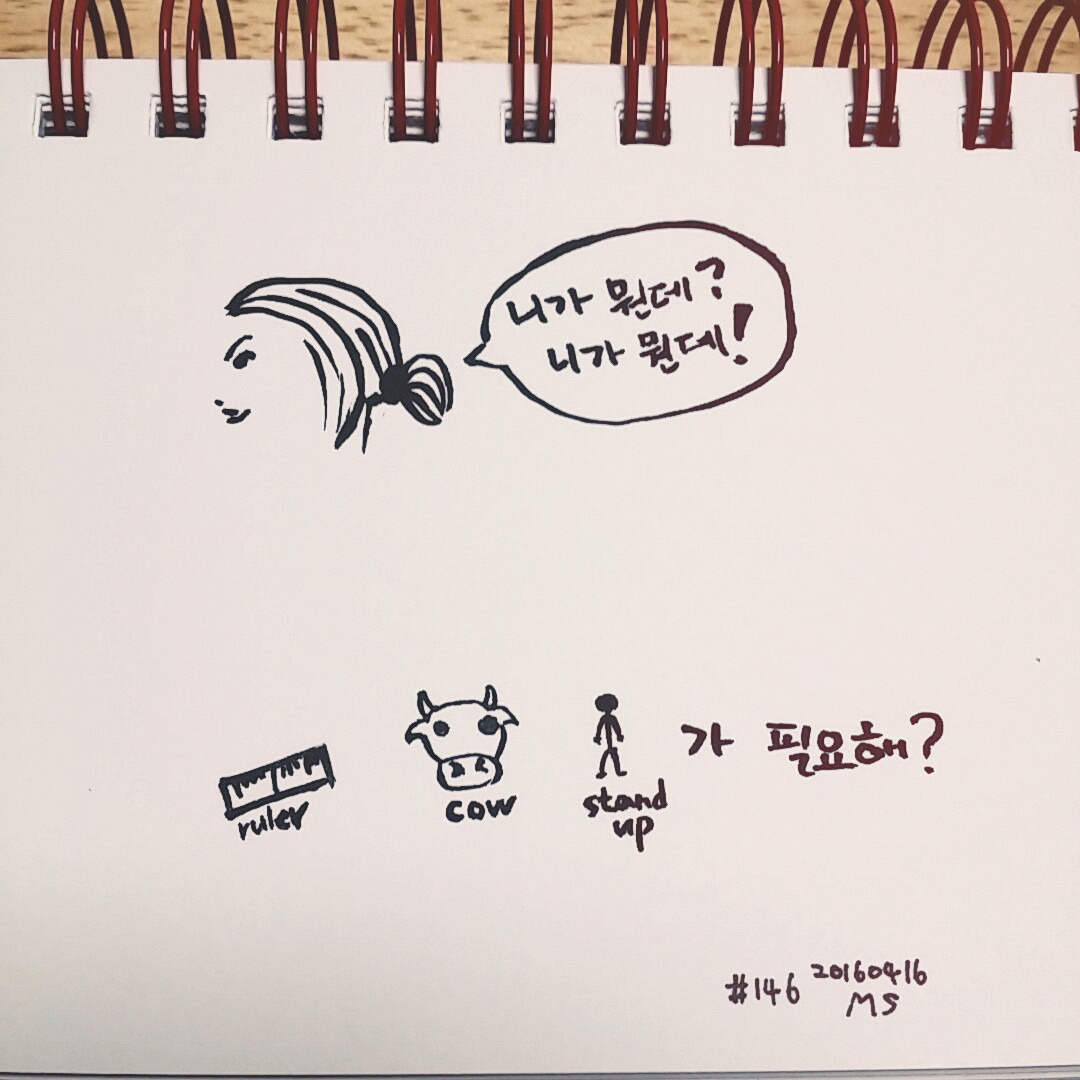 니가 뭔데?
니가 뭔데!
가 필요해?
ruler
cow
stand
up
#146 20160416
MS